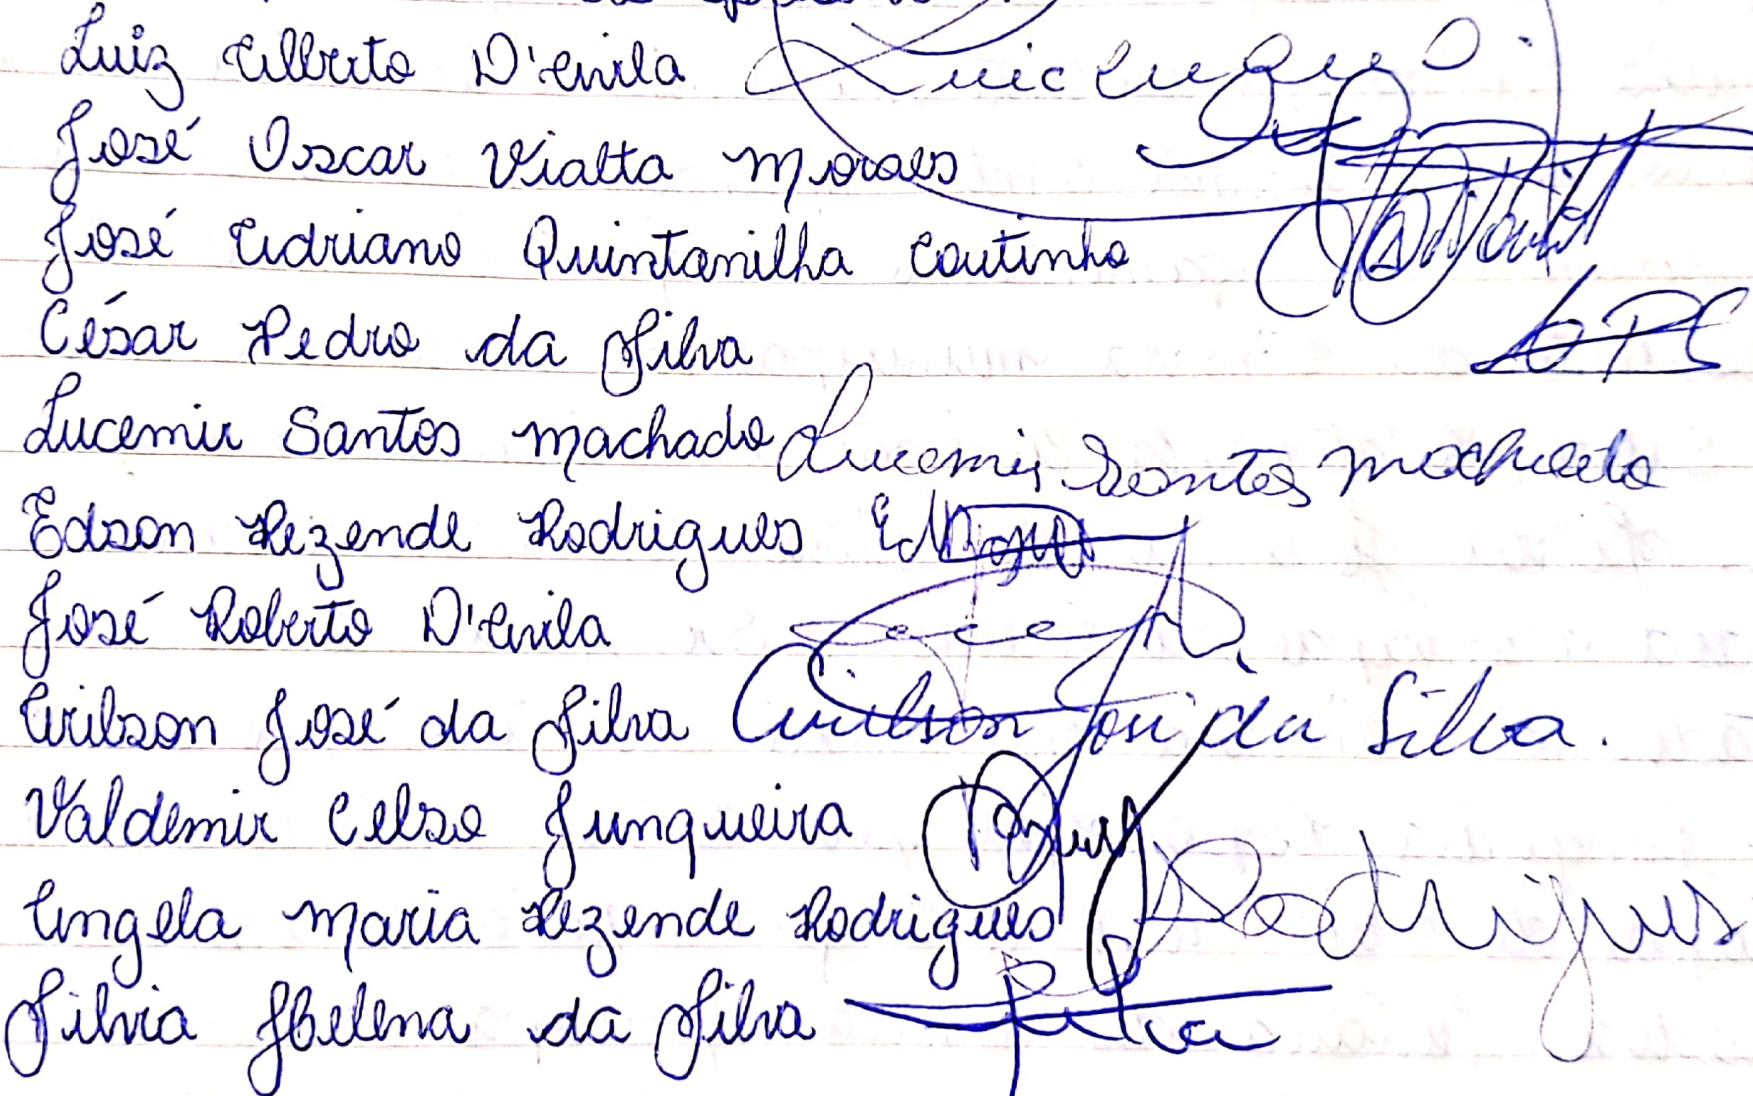 Luiz Alberto D'Avila
José Oscar Vialta Moraes
José Adriano Quintanilha Coutinho
César Pedro da Silva CPS
Lucemir Santos Machado Lucemir Santos Machado
Edson Rezende Rodrigues
José Roberto D'Avila
Arilson José da Silva Arilson José da Silva.
Valdemir Celso Junqueira
Angela Maria Rezende Rodrigues Rodrigues
Silvia Helena da Silva